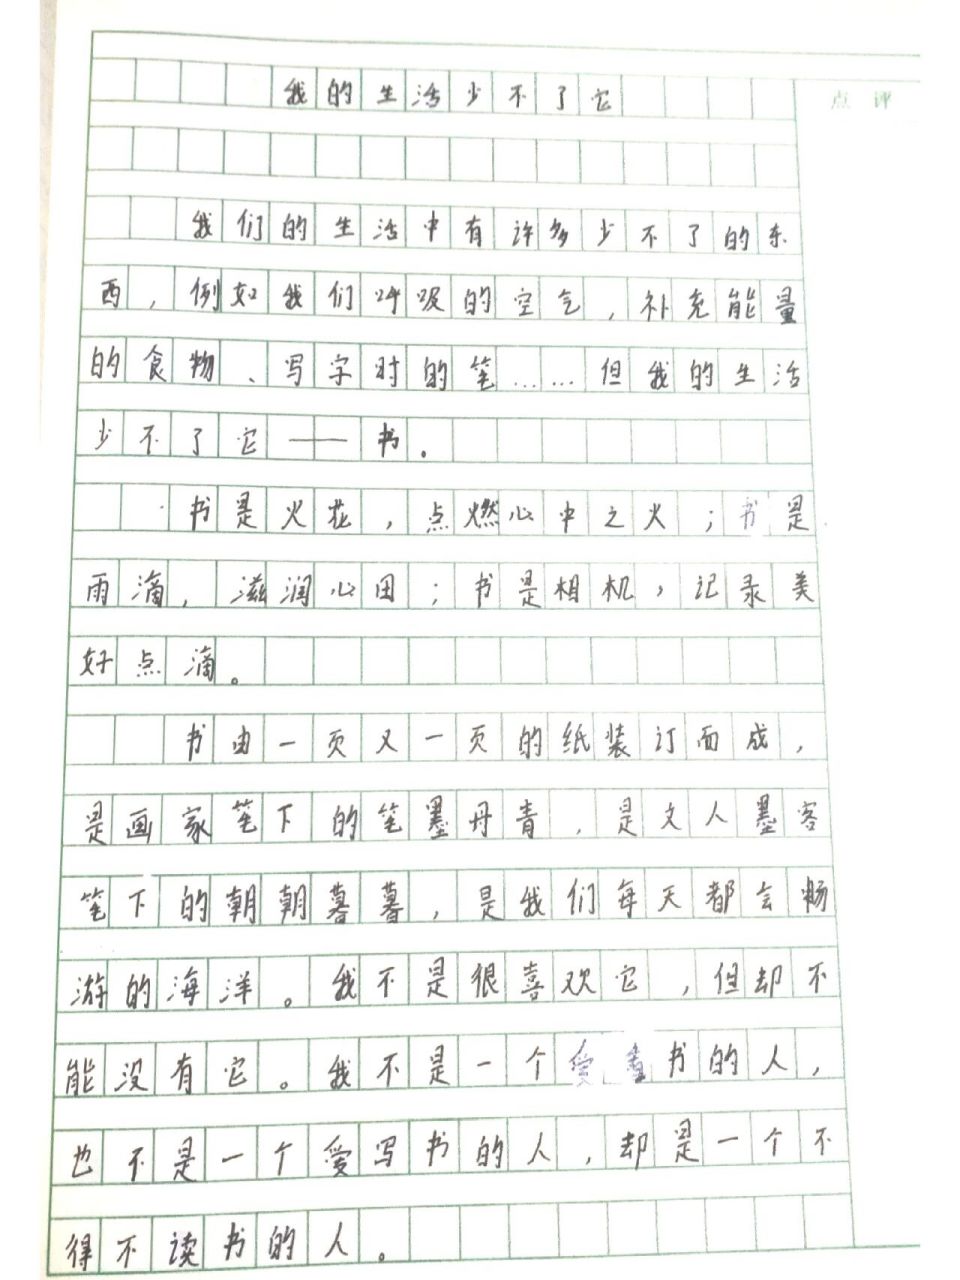 我的生活少不了它
点评
我们的生活中有许多少不了的东
西，例如我们呼吸的空气，补充能量
的食物、写字时的笔……但我的生活
少不了它——书。
书是火花，点燃心中之火；书是
雨滴，滋润心田；书是相机，记录美
好点滴。
书由一页又一页的纸装订而成，
是画家笔下的笔墨丹青，是文人墨客
笔下的朝朝暮暮，是我们每天都会畅
游的海洋。我不是很喜欢它，但却不
能没有它。我不是一个爱书的人，
也不是一个爱写书的人，却是一个不
得不读书的人。